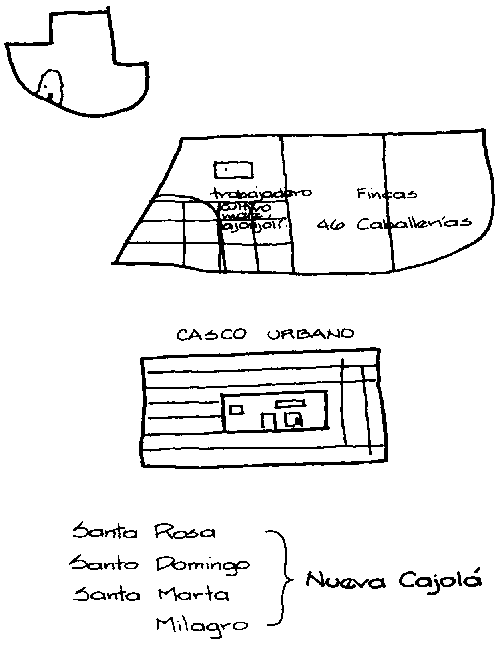 trabajadero
Fincas
cultivo
maiz,
ajonjolí
46 Caballerías
CASCO URBANO
Santa Rosa
Santo Domingo
Santa Marta
Milagro
Nueva Cajolá